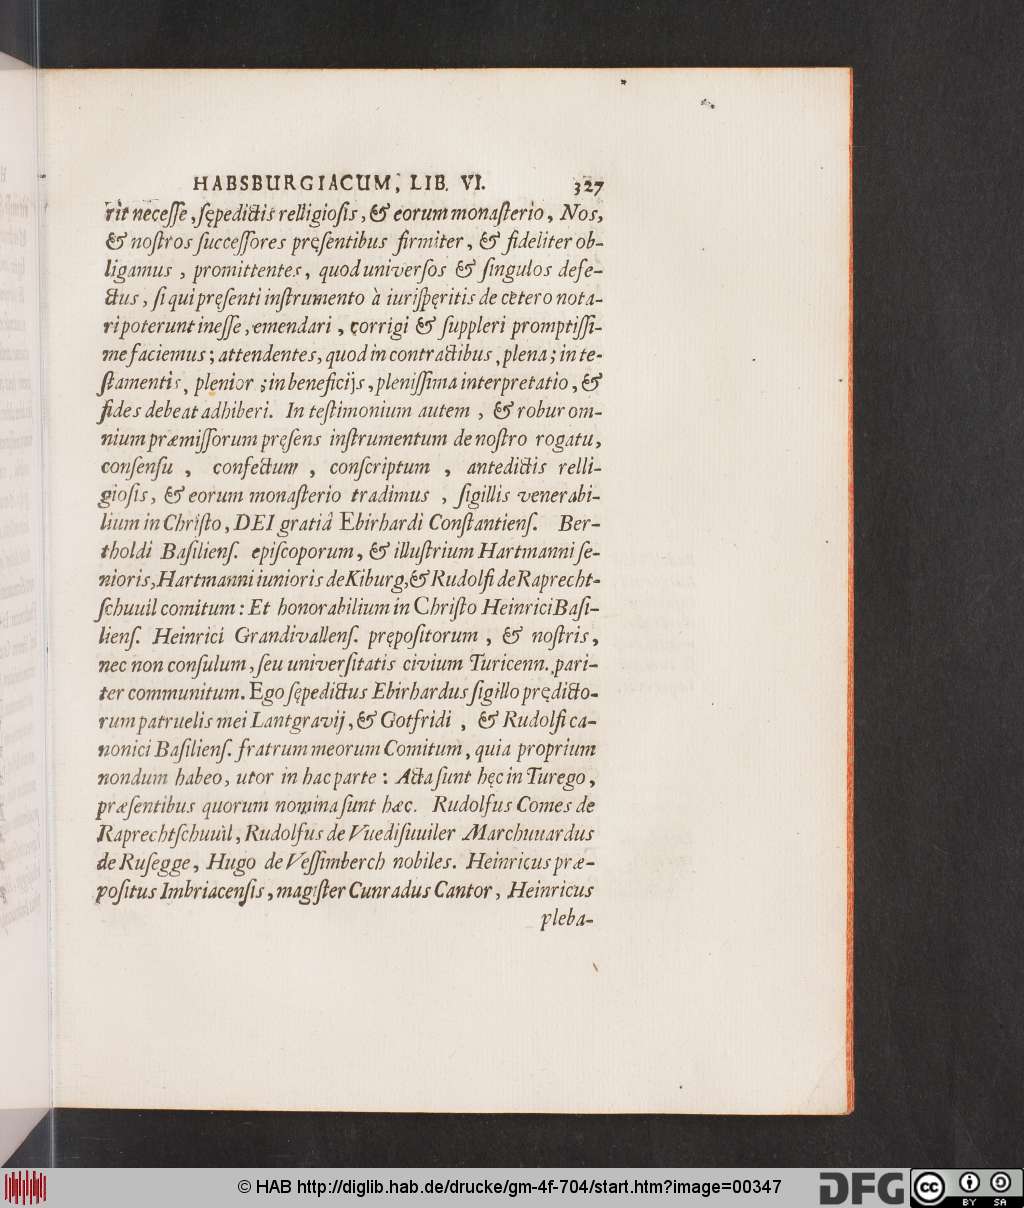 HABSBURGIACUM, LIB. VI. 327
rit necesse, sępedictis relligiosis, & eorum monasterio, Nos,
& nostros successores pręsentibus firmiter, & fideliter ob-
ligamus, promittentes, quod universos & singulos defe-
ctus, si qui pręsenti instrumento à iurisperitis de cetero nota-
ri poterunt inesse, emendari, corrigi & suppleri promptissi-
me faciemus; attendentes, quod in contractibus, plena; in te-
stamentis, plenior; in beneficijs, plenissima interpretatio, &
fides debeat adhiberi. In testimonium autem, & robur om-
nium præmissorum pręsens instrumentum de nostro rogatu,
consensu, confectum, conscriptum, antedictis relli-
giosis, & eorum monasterio tradimus, sigillis venerabi-
lium in Christo, DEI gratiâ Ebirhardi Constantiens. Ber-
tholdi Basiliens. episcoporum, & illustrium Hartmanni se-
nioris, Hartmanni iunioris de Kiburg, & Rudolfi de Raprecht-
schuuil comitum: Et honorabilium in Christo Heinrici Basi-
liens. Heinrici Grandivallens. prępositorum, & nostris,
nec non consulum, seu universitatis civium Turicenn. pari-
ter communitum. Ego sępedictus Ebirhardus sigillo prędicto-
rum patruelis mei Lantgravij, & Gotfridi, & Rudolfi ca-
nonici Basiliens. fratrum meorum Comitum, quia proprium
nondum habeo, utor in hac parte: Acta sunt hęc in Turego,
præsentibus quorum nomina sunt hæc. Rudolfus Comes de
Raprechtschuuil, Rudolfus de Vuedisuuiler Marchuuardus
de Rusegge, Hugo de Vessimberch nobiles. Heinricus præ-
positus Imbriacensis, magister Cunradus Cantor, Heinricus
pleba-
© HAB http://diglib.hab.de/drucke/gm-4f-704/start.htm?image=00347
DFG
cc BY SA